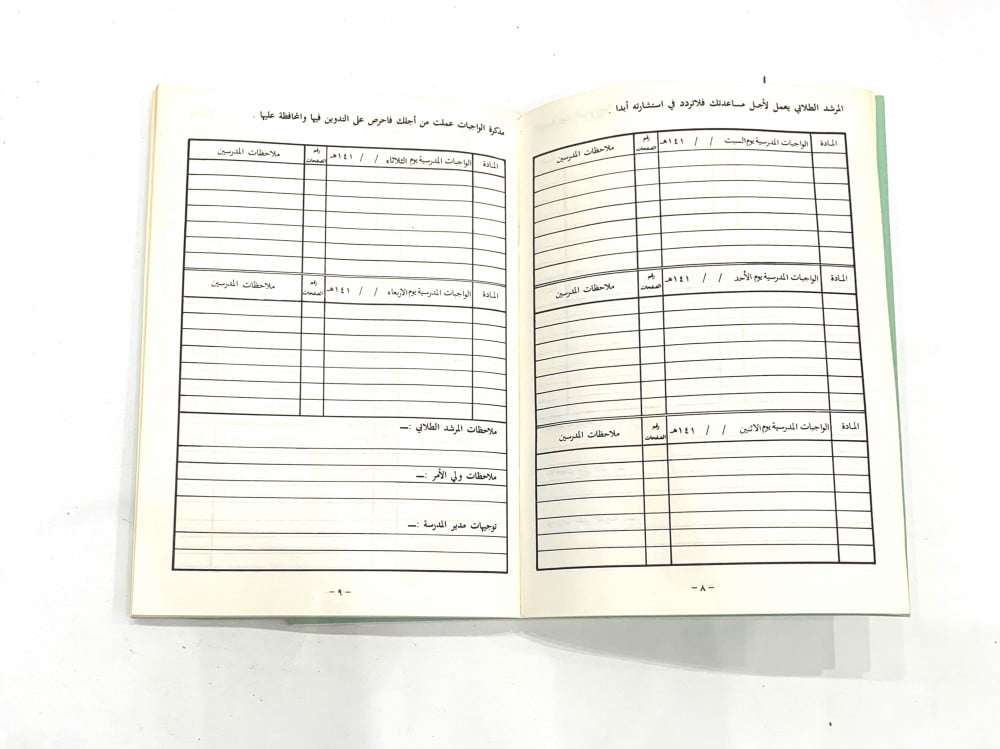 المرشد الطلابي يعمل لأجل مساعدتك فلاتردد في استشارته أبدا .
المادة الواجبات المدرسية يوم السبت / / ١٤١هـ رقم الصفحات ملاحظات المدرسين
المادة الواجبات المدرسية يوم الأحد / / ١٤١هـ رقم الصفحات ملاحظات المدرسين
المادة الواجبات المدرسية يوم الاثنين / / ١٤١هـ رقم الصفحات ملاحظات المدرسين
– ٨ –
مذكرة الواجبات عملت من أجلك فاحرص على التدوين فيها والمحافظة عليها .
المادة الواجبات المدرسية يوم الثلاثاء / / ١٤١هـ رقم الصفحات ملاحظات المدرسين
المادة الواجبات المدرسية يوم الإربعاء / / ١٤١هـ رقم الصفحات ملاحظات المدرسين
ملاحظات المرشد الطلابي :ــ
ملاحظات ولي الأمر :ــ
توجيهات مدير المدرسة :ــ
– ٩ –